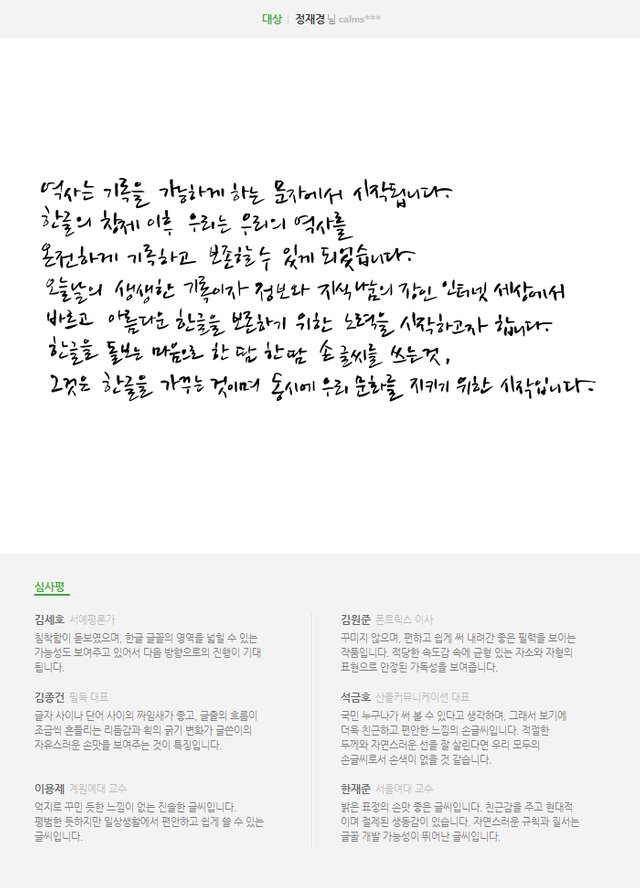 대상 | 정재경 님 calms***
역사는 기록을 가능하게 하는 문자에서 시작됩니다.
한글의 창제 이후 우리는 우리의 역사를
온전하게 기록하고 보존할 수 있게 되었습니다.
오늘날의 생생한 기록이자 정보와 지식나눔의 장인 인터넷 세상에서
바르고 아름다운 한글을 보존하기 위한 노력을 시작하고자 합니다.
한글을 돌보는 마음으로 한 땀 한 땀 손 글씨를 쓰는 것,
그것은 한글을 가꾸는 것이며 동시에 우리 문화를 지키기 위한 시작입니다.
심사평
김세호 서예평론가
침착함이 돋보였으며, 한글 글꼴의 영역을 넓힐 수 있는
가능성도 보여주고 있어서 다음 방향으로의 진행이 기대
됩니다.
김원준 폰트릭스 이사
꾸미지 않으며, 편하고 쉽게 써 내려간 좋은 필력을 보이는
작품입니다. 적당한 속도감 속에 균형 있는 자소와 자형의
표현으로 안정된 가독성을 보여줍니다.
김종건 필묵 대표
글자 사이나 단어 사이의 짜임새가 좋고, 글줄의 흐름이
조금씩 흔들리는 리듬감과 획의 굵기 변화가 글쓴이의
자유스러운 손맛을 보여주는 것이 특징입니다.
석금호 산돌커뮤니케이션 대표
국민 누구나가 써 볼 수 있다고 생각하며, 그래서 보기에
더욱 친근하고 편안한 느낌의 손글씨입니다. 적절한
두께와 자연스러운 선을 잘 살린다면 우리 모두의
손글씨로서 손색이 없을 것 같습니다.
이용제 계원예대 교수
억지로 꾸민 듯한 느낌이 없는 진솔한 글씨입니다.
평범한 듯하지만 일상생활에서 편안하고 쉽게 쓸 수 있는
글씨입니다.
한재준 서울여대 교수
밝은 표정의 손맛 좋은 글씨입니다. 친근감을 주고 현대적
이며 절제된 생동감이 있습니다. 자연스러운 규칙과 질서는
글꼴 개발 가능성이 뛰어난 글씨입니다.